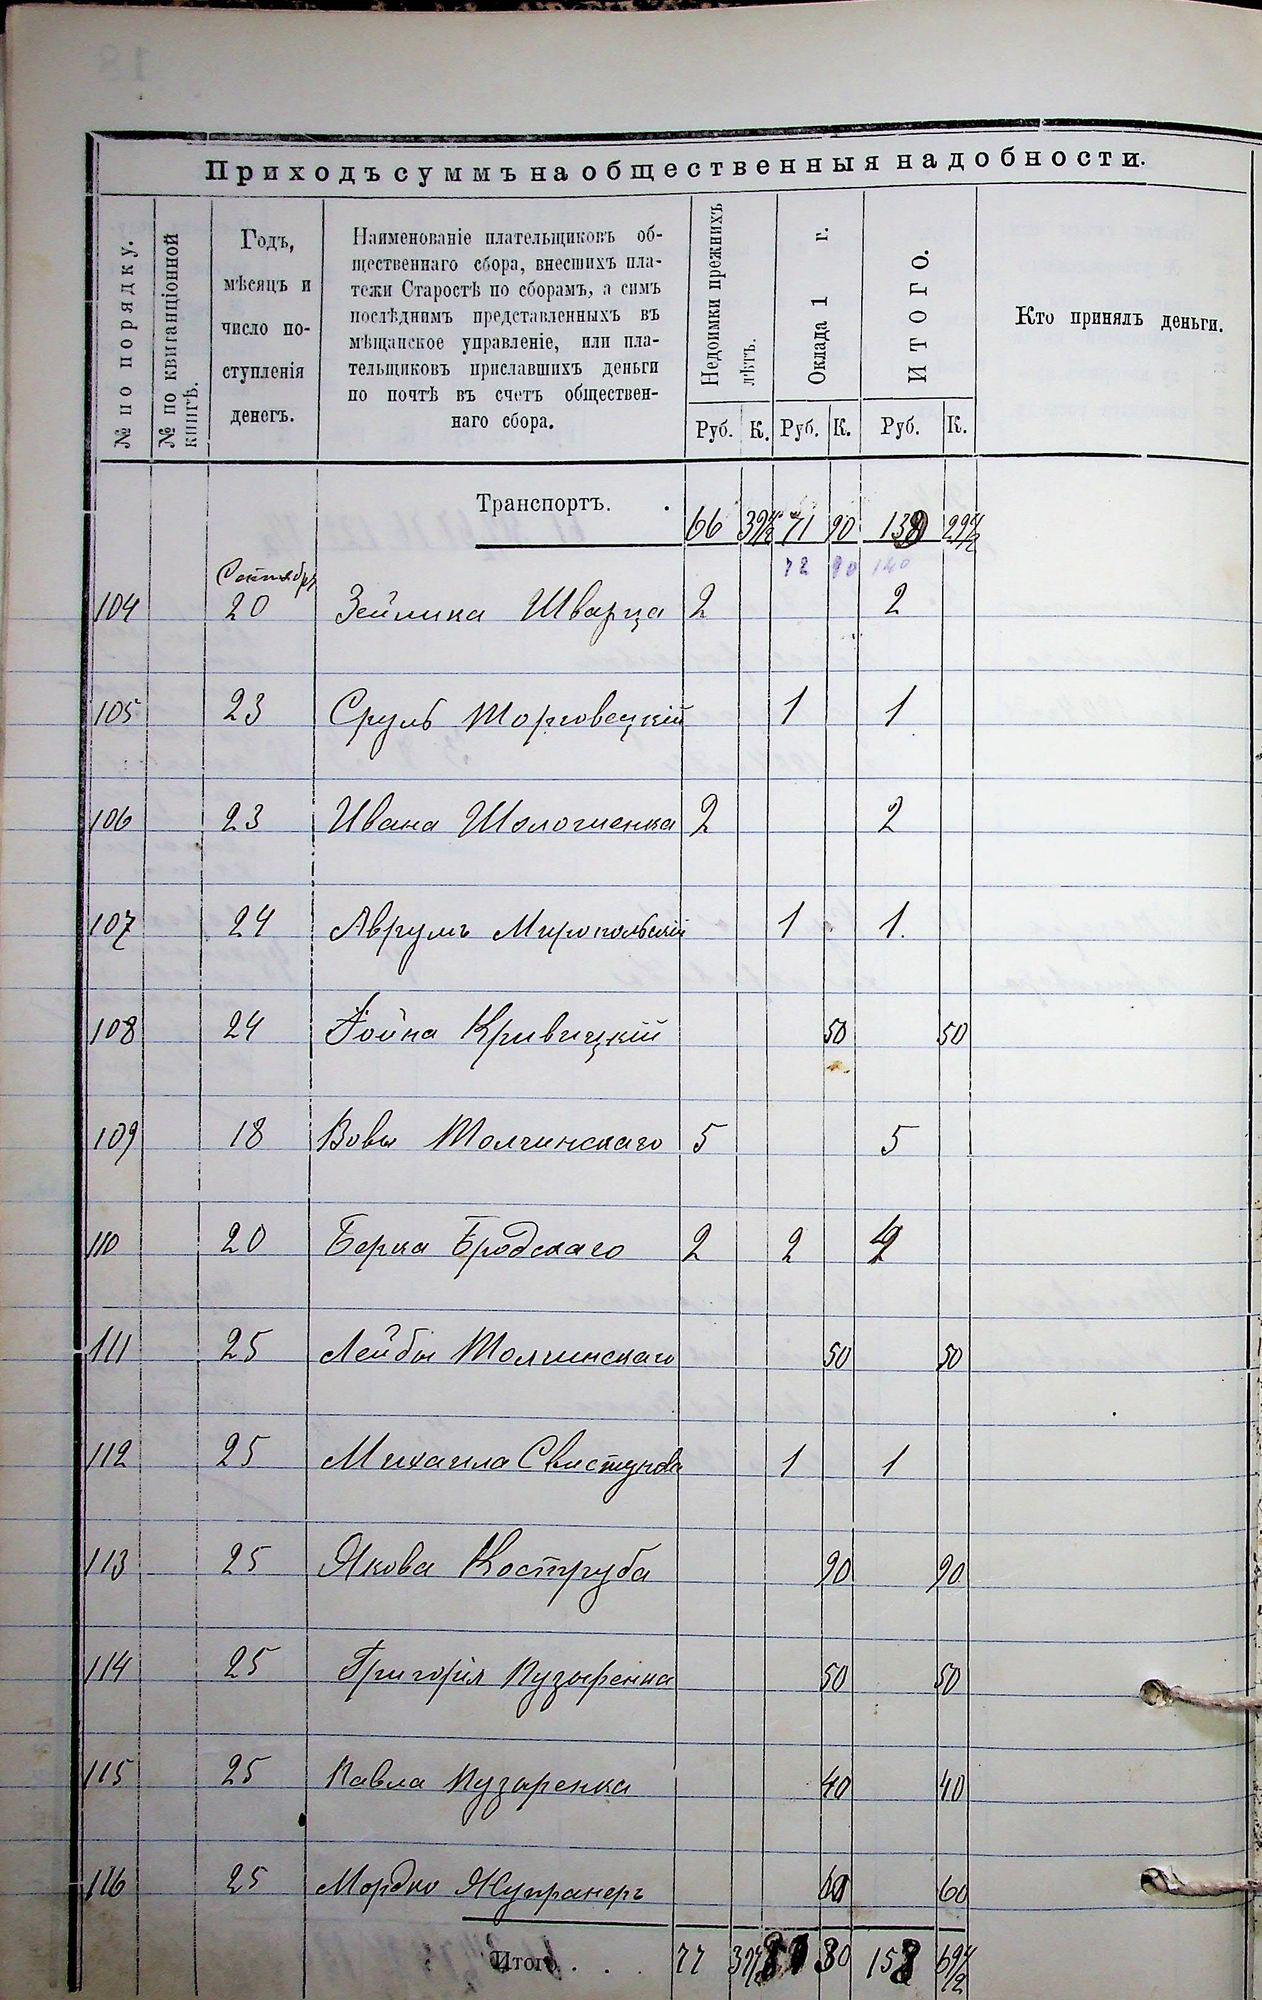 Приходъ суммъ на общественныя надобности.
№ по порядку.
№ по квитанціонной книгѣ.
Годъ,
мѣсяцъ и
число по-
ступленія
денегъ.
Наименованіе плательщиковъ об-
щественнаго сбора, внесшихъ пла-
тежи Старостѣ по сборамъ, а симъ
послѣднимъ представленныхъ въ
мѣщанское управленіе, или пла-
тельщиковъ приславшихъ деньги
по почтѣ въ счетъ обществен-
наго сбора.
Недоимки прежнихъ лѣтъ.
Оклада 1 г.
ИТОГО.
Кто принялъ деньги.
Руб. К. Руб. К. Руб. К.
Транспортъ. . 66 39½ 71 90 29½
72 90 140
Сентября
104 20 Зейлика Шварца 2 2
105 23 Сруль Торговецкій 1 1
106 23 Ивана 2 2
107 24 Аврумъ Миропольскій 1 1.
108 24 Іойна Кривицкій 50 50
109 18 Вовы Толчинскаго 5 5
110 20 Берка Бродскаго 2 2
111 25 Лейбы Толчинскаго 50 50
112 25 Михаила Свистунова 1 1
113 25 Якова Коструба 90 90
114 25 Григорія Пузыренка 50 50
115 25 Павла Пузыренка 40 40
116 25 Мордко 60 60
Итого . . . 77 39½ 30 158 69½